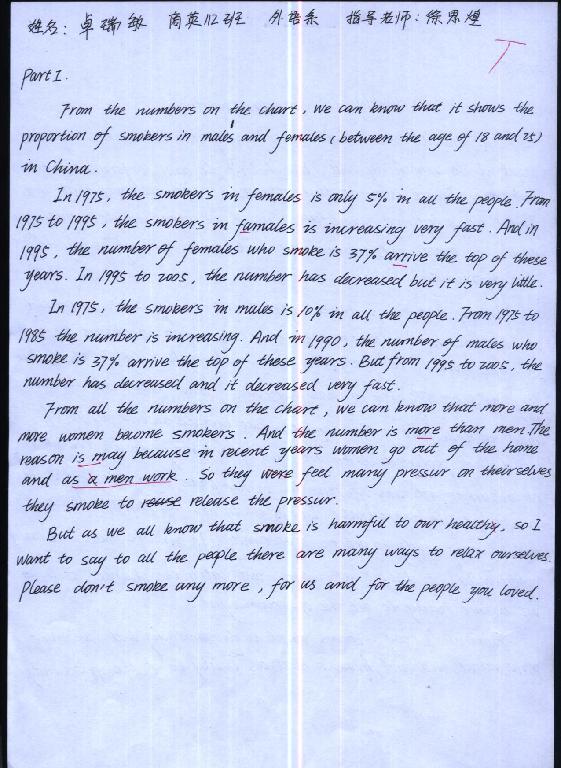 姓名: 卓瑞敏 商英112班 外语系 指导老师: 徐思煌
Part I.
From the numbers on the chart, we can know that it shows the
proportion of smokers in males and females (between the age of 18 and 25)
in China.
In 1975, the smokers in females is only 5% in all the people. From
1975 to 1995, the smokers in famales is increasing very fast. And in
1995, the number of females who smoke is 37% arrive the top of these
years. In 1995 to 2005, the number has decreased but it is very little.
In 1975, the smokers in males is 10% in all the people. From 1975 to
1985 the number is increasing. And in 1990, the number of males who
smoke is 37% arrive the top of these years. But from 1995 to 2005, the
number has decreased and it decreased very fast.
From all the numbers on the chart, we can know that more and
more women become smokers. And the number is more than men. The
reason is may because in recent years women go out of the home
and as a men work. So they were feel many pressur on theirselves
they smoke to release the pressur.
But as we all know that smoke is harmful to our healthy, so I
want to say to all the people there are many ways to relax ourselves.
Please don't smoke any more, for us and for the people you loved.